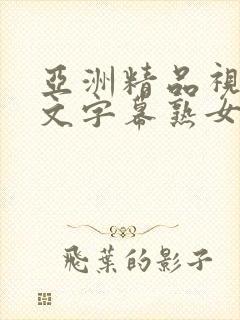 亞洲精品視
文字幕熟女
飛葉的影子